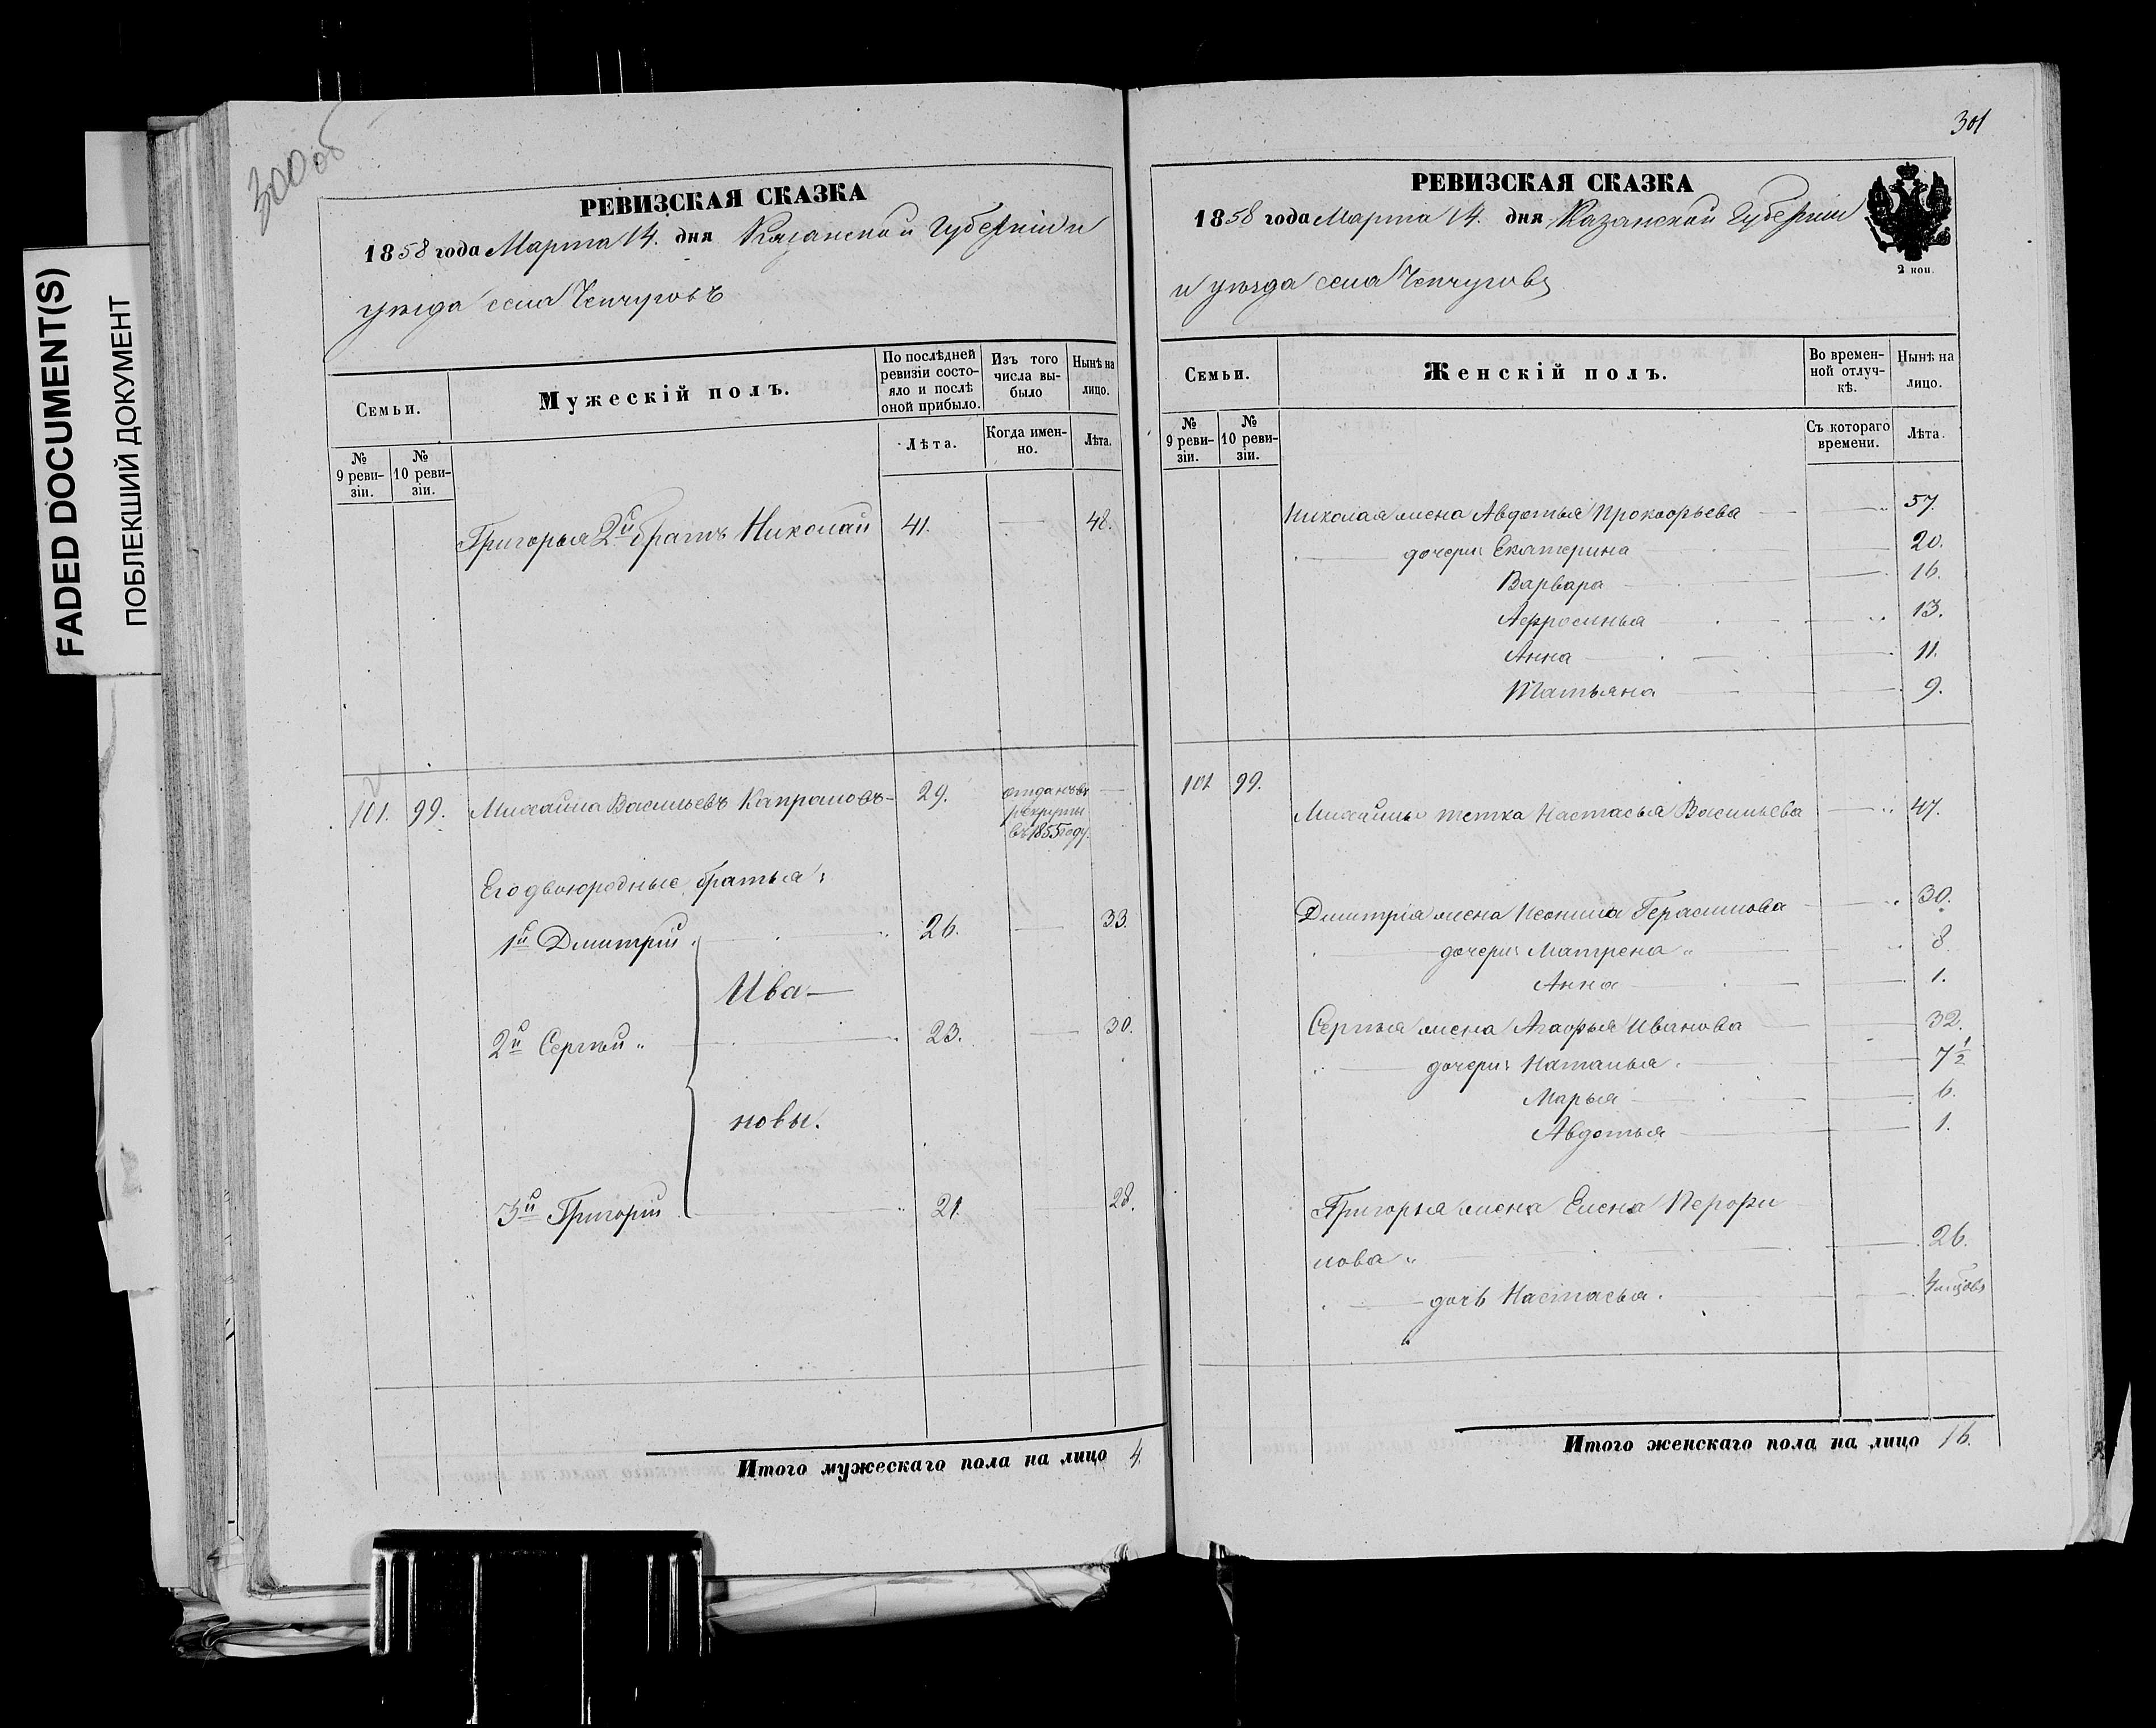 FADED DOCUMENT(S)
ПОБЛЕКШИЙ ДОКУМЕНТ
300 об
РЕВИЗСКАЯ СКАЗКА
1858 года Марта 14. дня Казанской Губерніи и
уѣзда села Чепчуговъ
Семьи.
Мужескій полъ.
По послѣдней ревизіи состояло и послѣ оной прибыло.
Изъ того числа выбыло
Нынѣ на лицо.
№ 9 ревизіи.
№ 10 ревизіи.
Лѣта.
Когда именно.
Лѣта.
Григорья 2й братъ Николай 41. — 48.
101. 99. Михайла Васильевъ Капраловъ 29. отданъ въ
рекруты
въ 1855 году. —
Его двоюродные братья:
1й Дмитрій 26. — 33.
Ива—
2й Сергѣй 23. — 30.
новы.
3й Григорій 21. 28.
Итого мужескаго пола на лицо 4.
301
РЕВИЗСКАЯ СКАЗКА
1858 года Марта 14. дня Казанской Губерніи
и уѣзда села Чепчуговъ
2 коп.
Семьи.
Женскій полъ.
Во временной отлучкѣ.
Нынѣ на лицо.
№ 9 ревизіи.
№ 10 ревизіи.
Съ котораго времени.
Лѣта.
Николая жена Авдотья Прокофьева — 57.
дочери: Екатерина 20.
Варвара 16.
Афросинья 13.
Анна 11.
Татьяна 9.
101 99.
Михайлы тетка Настасья Васильева — 47.
Дмитрія жена Неонила Герасимова 30.
дочери: Матрена 8.
Анна 1.
Сергѣя жена Агафья Иванова 32.
дочери: Наталья 7 1/2
Марья 6.
Авдотья 1.
Григорья жена Елена
26.
дочь Настасья.
Итого женскаго пола на лицо 16.